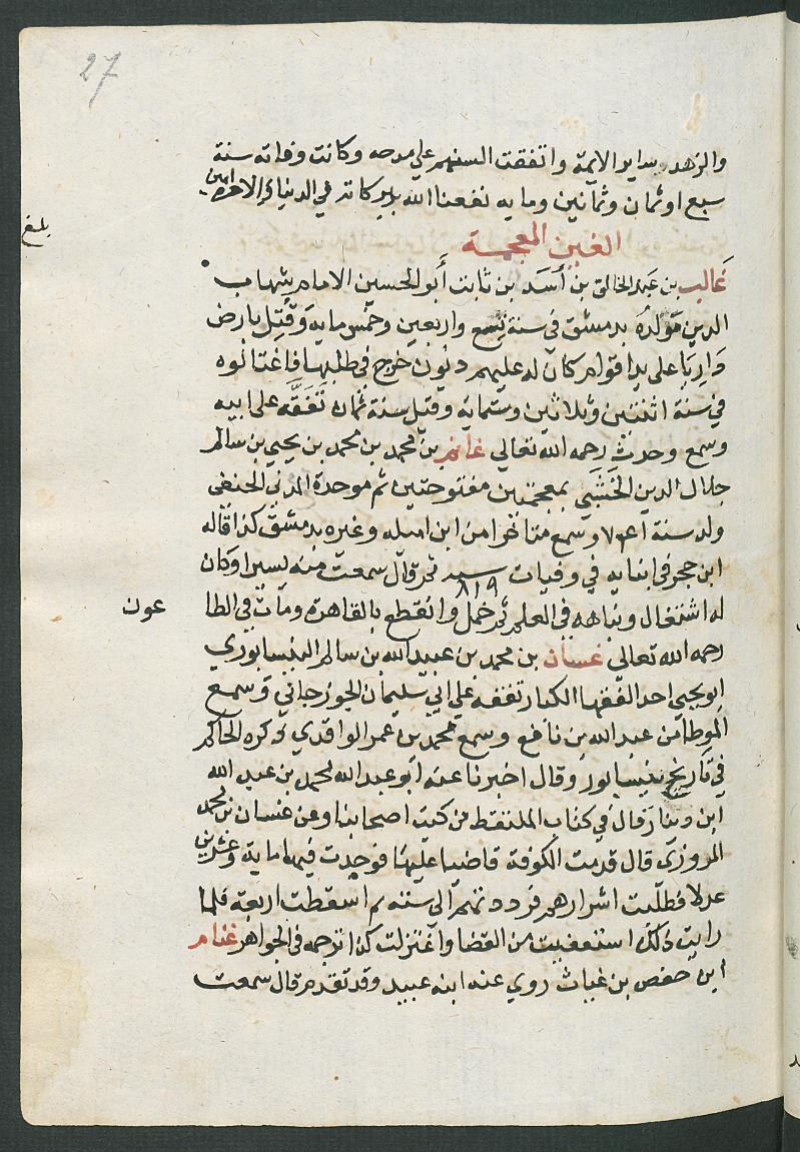 27
والزهد سداير الايمة واتفقت السنهم علي مدحه وكانت وفاته سنة
سبع اوثمان وثمانين ومايه نفعنا الله ببركاته في الدنيا والاخره امين
بلغ
الغين المعجمة
غالب بن عبد الخالق بن أسد بن ثابت أبو الحسين الامام شهاب
الدين مولده بدمشق في سنة تسع واربعين وخمس مايه وقتل بارض
داريا على يد اقوام كان له عليهم ديون خرج في طلبها فاغتالوه
في سنة اثنتين وثلاثين وستمايه وقيل سنة ثمان تفقه على ابيه
وسمع وحدث رحمه الله تعالي غانم بن محمد بن محمد بن يحيي بن سالم
جلال الدين الخشبي بمعجمتين مفتوحتين ثم موحدة المدني الحنفي
ولد سنة ٧٤١ وسمع متاخرا من ابن اميله وغيره بدمشق كذا قاله
ابن حجر في انبايه في وفيات سنة ٨١٩ ثم قال سمعت منه يسيرا وكان
له اشتغال ونباهه في العلم ثم خمل وانقطع بالقاهرة ومات في الطا
عون
رحمه الله تعالي غسان بن محمد بن عبيد الله بن سالم النيسابوري
ابو يحيي احد الفقها الكبار تفقه علي ابي سليمان الجوزجاني وسمع
الموطا من عبد الله بن نافع وسمع محمد بن عمر الواقدي ذكره الحاكم
في تاريخ نيسابور وقال اخبرنا عنه أبو عبد الله محمد بن عبد الله
ابن دينار قال في كتاب الملتقط من كتب اصحابنا وعن غسان بن محمد
المروزي قال قدمت الكوفة قاضيا عليها فوجدت فيها ماية وعشرين
عدلا فطلبت اسرارهم فرددتهم الي سته ثم اسقطت اربعة فلما
رايت ذلك استعفيت من القضا واعتزلت كذا ترجمه في الجواهر غنام
ابن حفص بن غياث روي عنه ابنه عبيد وقد تقدم قال سمعت